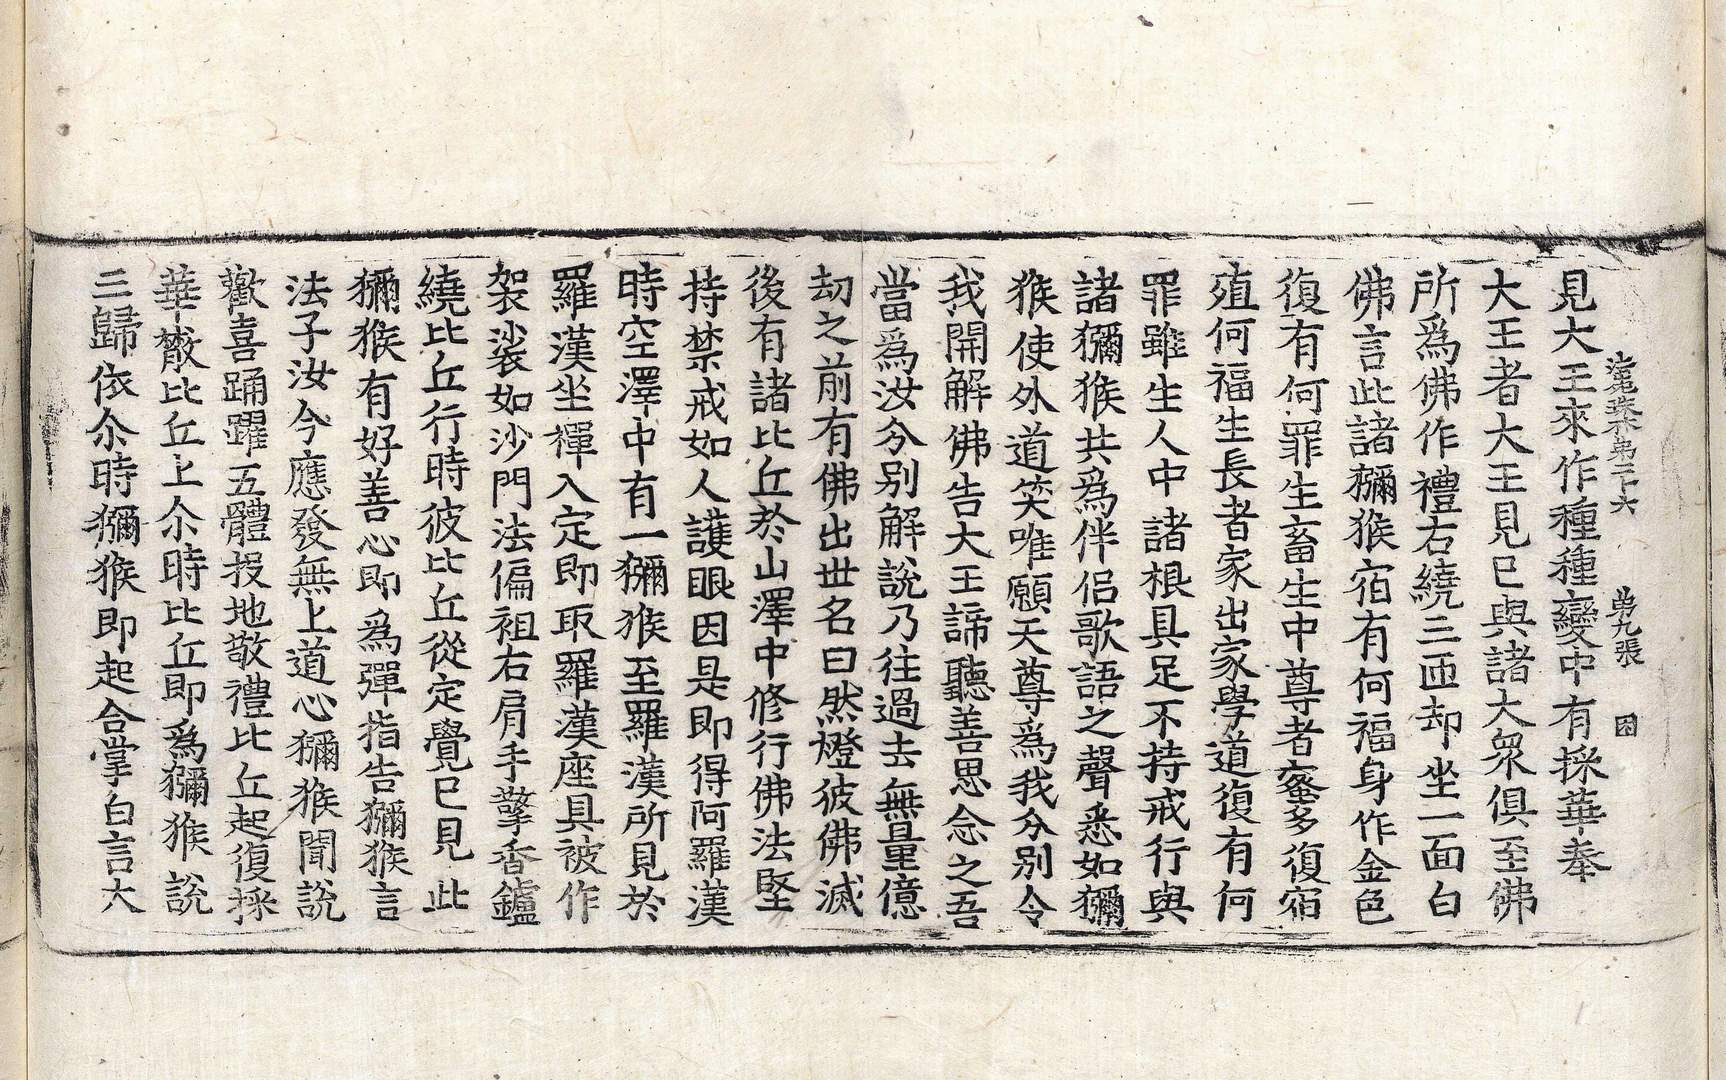 法苑珠林第三十六 第九張 困
見大王來作種種變中有採華奉
大王者大王見已與諸大衆俱至佛
所爲佛作禮右繞三匝却坐一面白
佛言此諸獼猴宿有何福身作金色
復有何罪生畜生中尊者蜜多復宿
殖何福生長者家出家學道復有何
罪雖生人中諸根具足不持戒行與
諸獼猴共爲伴侣歌語之聲悉如獼
猴使外道笑唯願天尊爲我分別令
我開解佛告大王諦聽善思念之吾
當爲汝分別解說乃往過去無量億
劫之前有佛出世名曰然燈彼佛滅
後有諸比丘於山澤中修行佛法堅
持禁戒如人護眼因是即得阿羅漢
時空澤中有一獼猴至羅漢所見於
羅漢坐禪入定即取羅漢座具被作
袈裟如沙門法偏袒右肩手擎香鑪
繞比丘行時彼比丘從定覺已見此
獼猴有好善心即爲彈指告獼猴言
法子汝今應發無上道心獼猴聞說
歡喜踊躍五體投地敬禮比丘起復採
華散比丘上尒時比丘即爲獼猴說
三歸依尒時獼猴即起合掌白言大